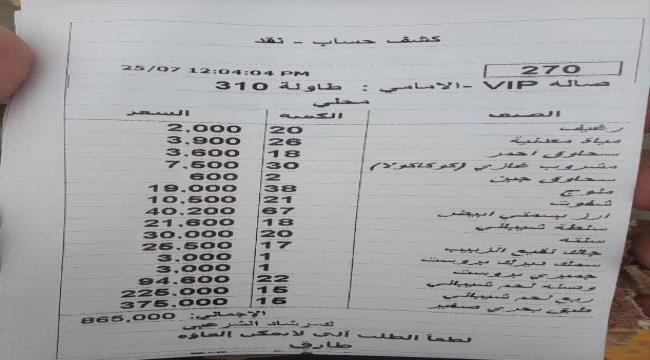 كشف حساب - نقد
270 25/07 12:04:04 PM
صاله VIP -الامامي : طاولة 310
محلي
الصنف الكميه السعر
رغيف 20 2.000
مياة معدنية 26 3.900
سحاوق احمر 18 3.600
مشروب غازي (كوكاكولا) 30 7.500
سحاوق جبن 2 600
ملوج 38 19.000
شفوت 21 10.500
ارز بسمتي ابيض 67 40.200
سلطة شيباني 18 21.600
سلته 20 30.000
جك نقيع الزبيب 17 25.500
سمك فيرك بروست 1 3.000
جمبري بروست 1 3.000
وصله لحم شيباني 22 94.600
ربع لحم شيباني 15 225.000
طبق بحري صغير 15 375.000
الإجمالي: 865,000
رشاد الشرعبي
لطفآ الطلب آلي لايمكن إلغاؤه
طارق